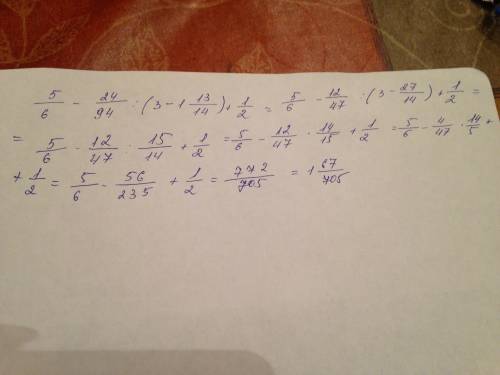 5/6 - 24/94 : (3 - 1 13/14) + 1/2 = 5/6 - 12/47 : (3 - 27/14) + 1/2 =
= 5/6 - 12/47 · 15/14 + 1/2 = 5/6 - 12/47 · 14/15 + 1/2 = 5/6 - 4/47 · 14/5 +
+ 1/2 = 5/6 - 56/235 + 1/2 = 772/705 = 1 67/705